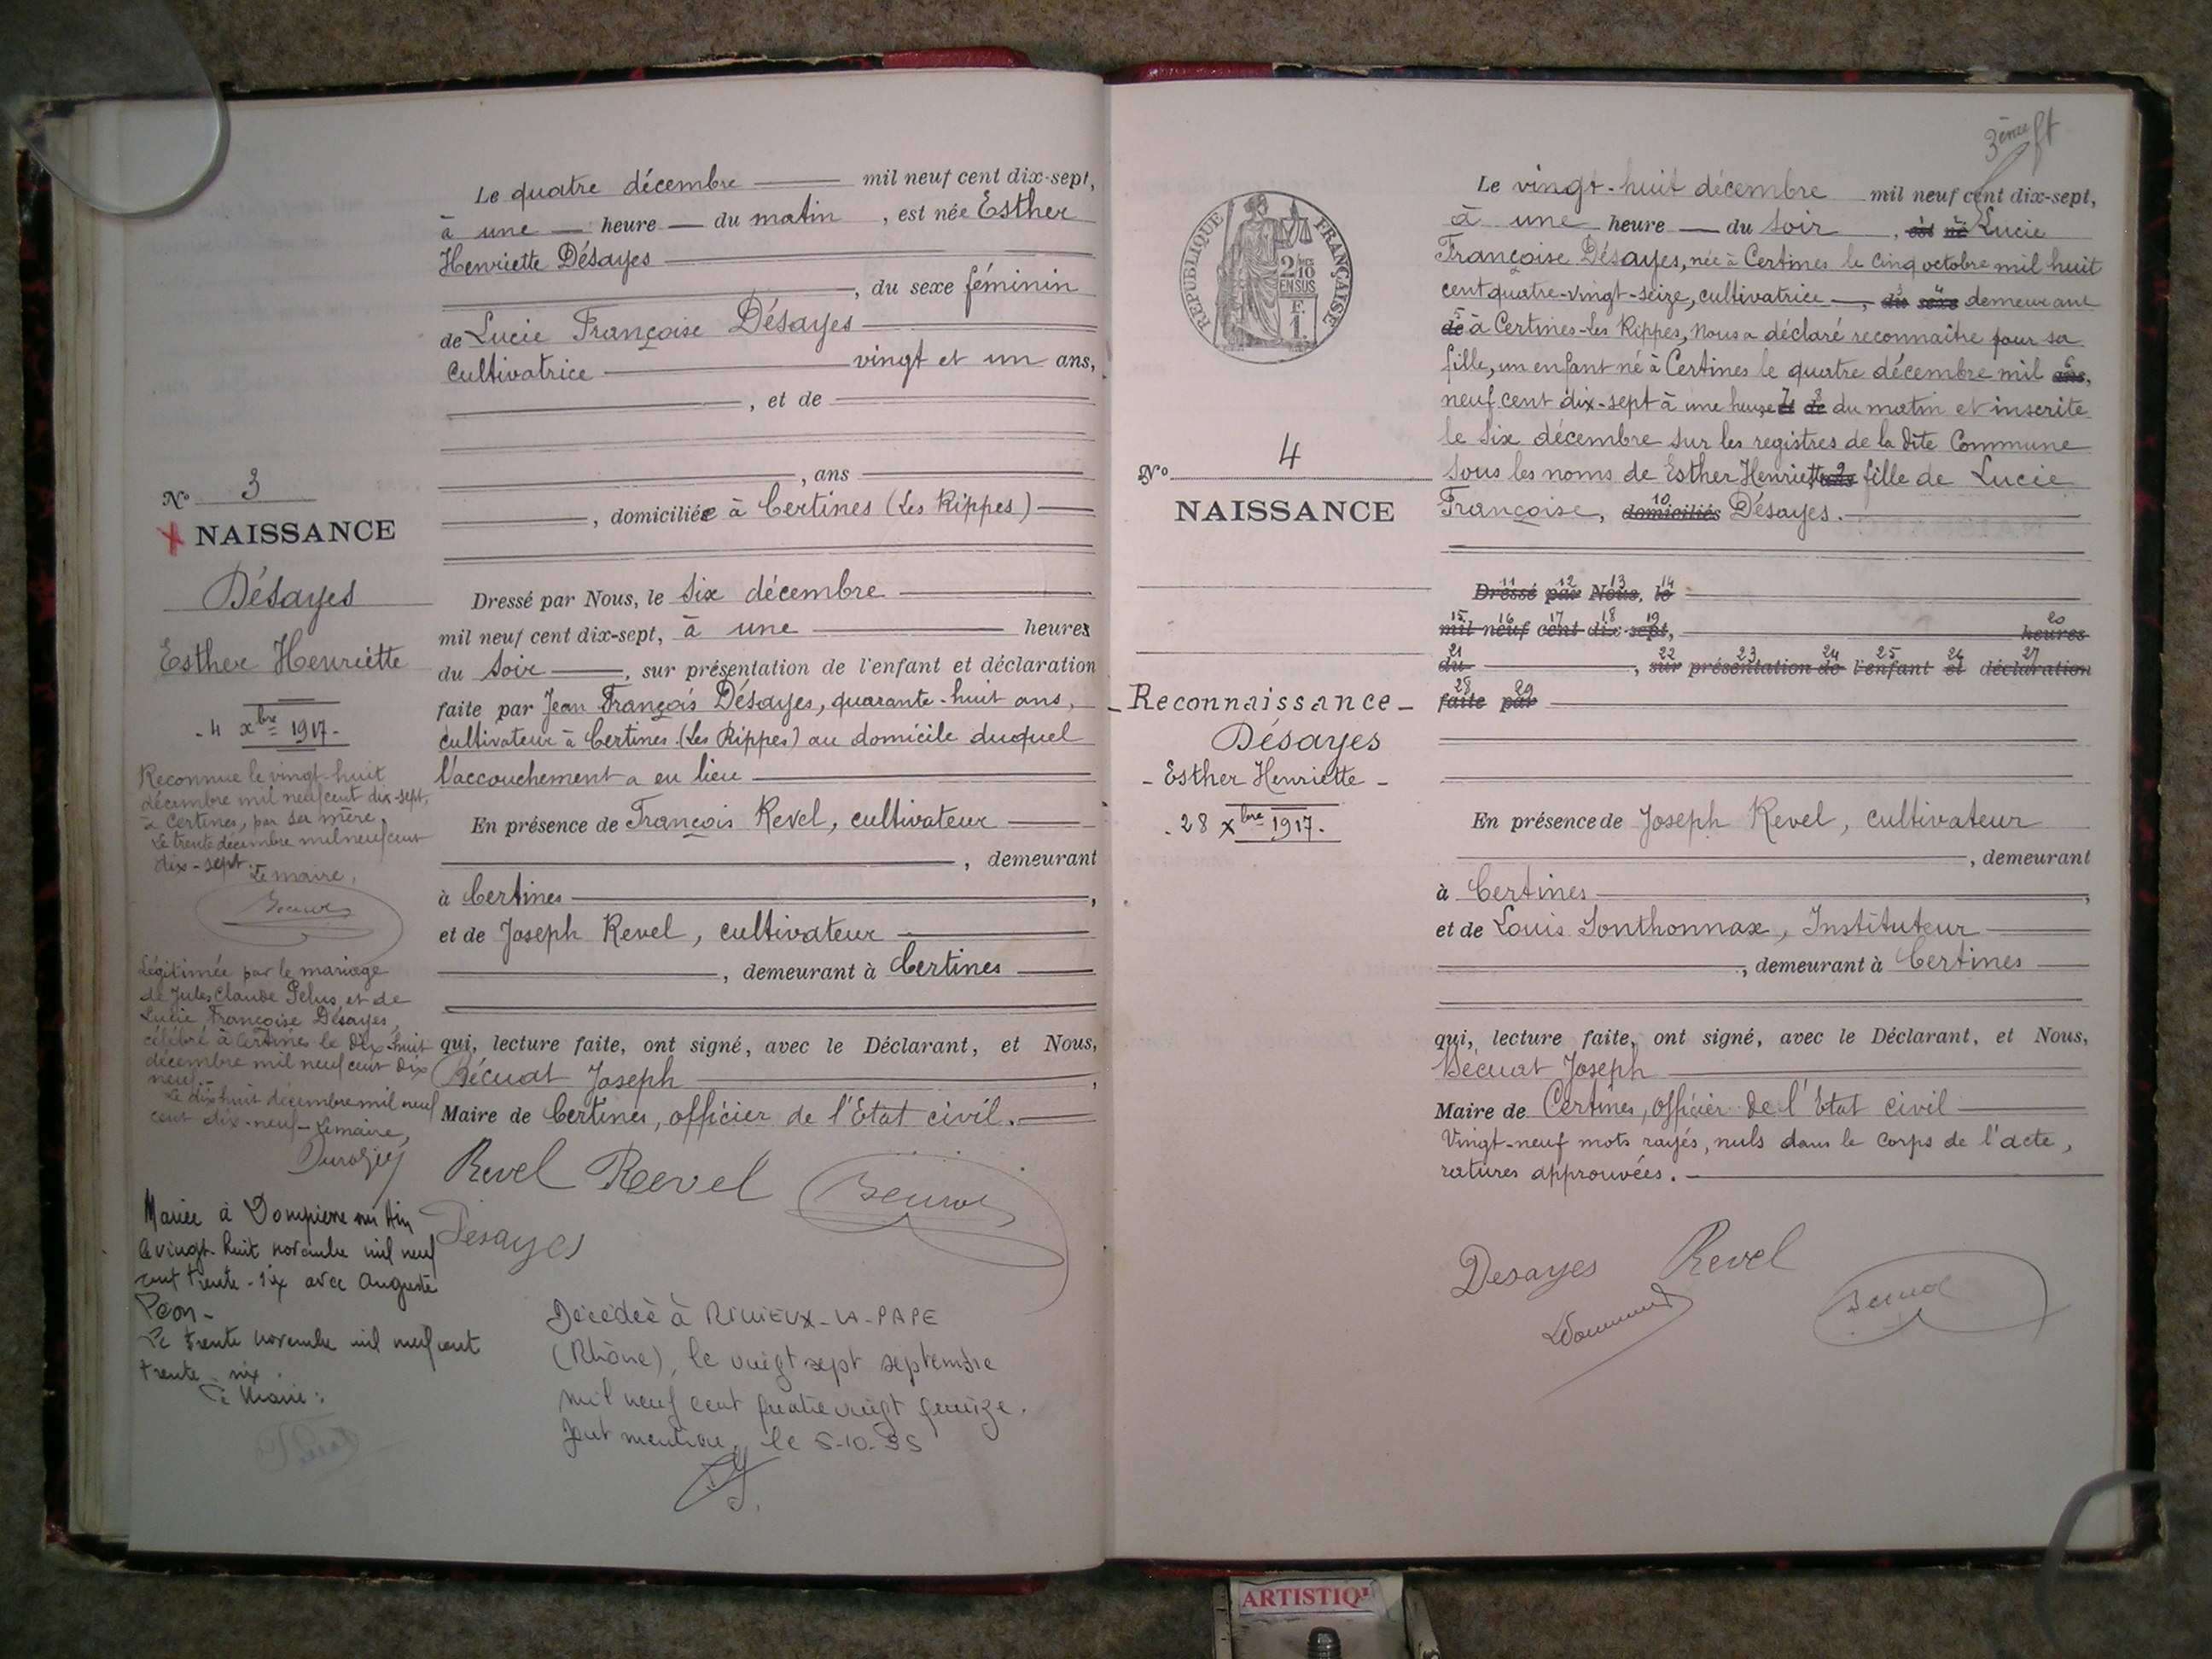 N° 3
NAISSANCE
Désayes
Esther Henriette
- 4 xbre 1917 -
Reconnue le vingt-huit
décembre mil neuf cent dix-sept,
à Certines, par sa mère
Le trente décembre mil neuf cent
dix-sept.
Le maire,
Légitimée par le mariage
de Jules Claude Pelus et de
Lucie Françoise Désayes,
célébré à Certines le dix-huit
décembre mil neuf cent dix
neuf.-
Le dix huit décembre mil neuf
cent dix-neuf - Le maire,
Mariée à Dompierre sur Ain
le vingt huit novembre mil neuf
cent trente-six avec Auguste
Péon -
Le trente novembre mil neuf cent
trente six.
Le Maire :
Le quatre décembre mil neuf cent dix-sept,
à une heure du matin, est née Esther
Henriette Désayes
, du sexe féminin
de Lucie Françoise Désayes
Cultivatrice vingt et un ans,
, et de
, ans
, domiciliée à Certines (Les Rippes)
Dressé par Nous, le six décembre
mil neuf cent dix-sept, à une heures
du soir, sur présentation de l'enfant et déclaration
faite par Jean François Désayes, quarante-huit ans,
cultivateur à Certines (Les Rippes) au domicile duquel
l'accouchement a eu lieu
En présence de François Revel, cultivateur
, demeurant
à Certines,
et de Joseph Revel, cultivateur
, demeurant à Certines
qui, lecture faite, ont signé, avec le Déclarant, et Nous,
Bécuat Joseph,
Maire de Certines, officier de l'Etat civil.
Revel Revel
Désayes
Décédée à RILLIEUX-LA-PAPE
(Rhône), le vingt sept septembre
mil neuf cent quatre vingt quinze.
Dont mention, le 5-10-95
3ème ft
REPUBLIQUE FRANÇAISE
2/10
EN SUS
F.
1.
N° 4
NAISSANCE
- Reconnaissance -
Désayes
- Esther Henriette -
- 28 xbre 1917.
Le vingt-huit décembre mil neuf cent dix-sept,
à une heure du soir, est né Lucie
Françoise Désayes, née à Certines le cinq octobre mil huit
cent quatre-vingt-seize, cultivatrice, du sexe demeurant
de à Certines-Les Rippes, nous a déclaré reconnaître pour sa
fille, un enfant né à Certines le quatre décembre mil ans,
neuf cent dix-sept à une heure et de du matin et inscrite
le six décembre sur les registres de la dite Commune
sous les noms de Esther Henriette ans fille de Lucie
Françoise, domiciliés Désayes.
Dressé par Nous, le
mil neuf cent dix-sept, heures
du, sur présentation de l'enfant et déclaration
faite par
En présence de Joseph Revel, cultivateur
, demeurant
à Certines,
et de Louis Sonthonnax, Instituteur
, demeurant à Certines
qui, lecture faite, ont signé, avec le Déclarant, et Nous,
Bécuat Joseph
Maire de Certines, officier de l'Etat civil
Vingt-neuf mots rayés, nuls dans le corps de l'acte,
ratures approuvées.
Desayes Revel
ARTISTIQ